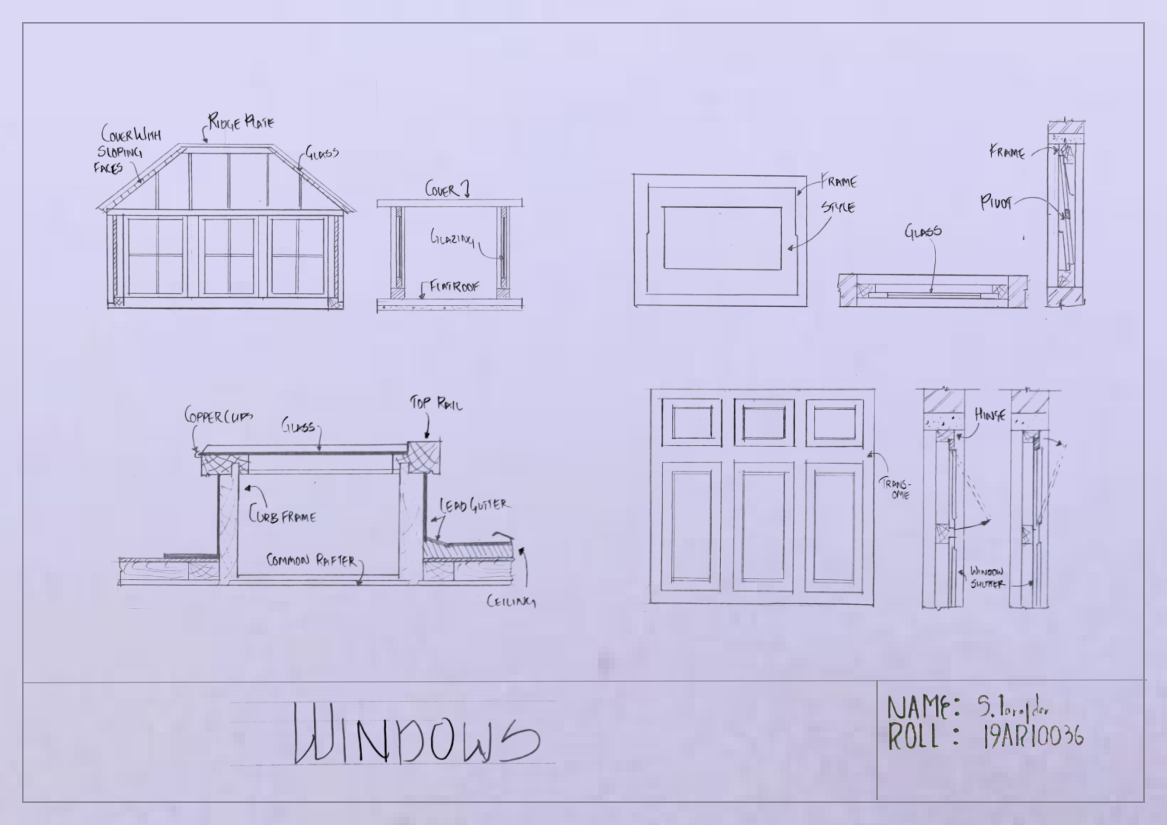 COVER WITH
SLOPING
FACES
RIDGE PLATE
GLASS
COVER
GLAZING
FLATROOF
FRAME
STYLE
GLASS
FRAME
PIVOT
COPPER CLIPS
GLASS
TOP RAIL
CURB FRAME
LEAD GUTTER
COMMON RAFTER
CEILING
TRANS-
OME
HINGE
WINDOW
SHUTTER
WINDOWS
NAME: S.
ROLL : 19AR10036